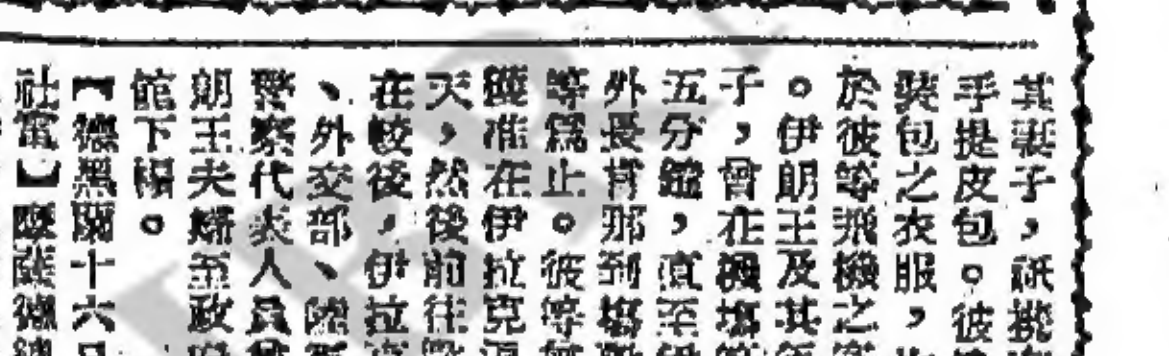 其妻子，祇挑
手提皮包。彼
裝包之衣服，
於彼等飛機之
。伊朗王及其
子，曾在機塲等
五分鐘，直至伊
外長肯那到塲
等爲止。彼等
獲准在伊拉克
天，然後前往
在較後，伊拉克
、外交部、陸
警察代表人員
朗王夫婦至政
館下榻。
【德黑蘭十六日
社電】摩薩德